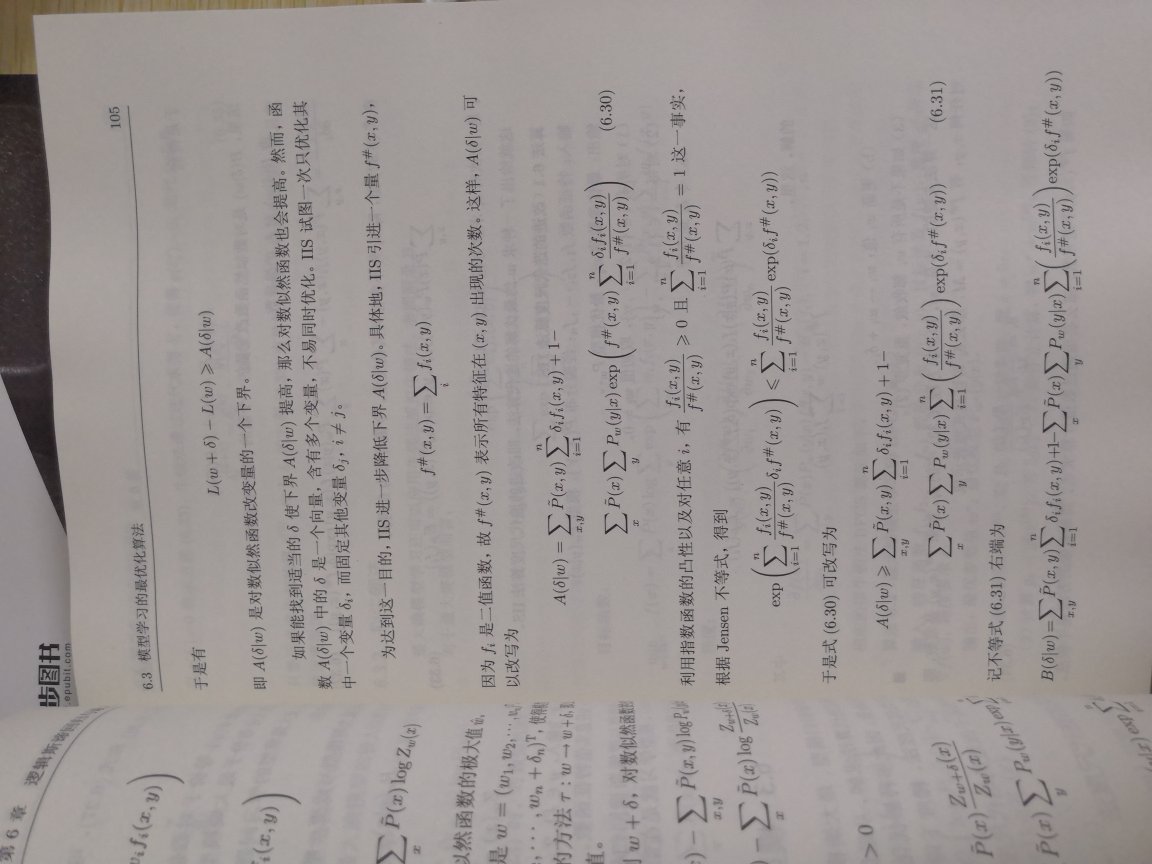 6.3 模型学习的最优化算法 105
于是有
L(w + δ) − L(w) ⩾ A(δ|w)
即 A(δ|w) 是对数似然函数改变量的一个下界。
如果能找到适当的 δ 使下界 A(δ|w) 提高，那么对数似然函数也会提高。然而，函
数 A(δ|w) 中的 δ 是一个向量，含有多个变量，不易同时优化。IIS 试图一次只优化其
中一个变量 δ_i，而固定其他变量 δ_j，i ≠ j。
为达到这一目的，IIS 进一步降低下界 A(δ|w)。具体地，IIS 引进一个量 f^#(x, y)，
f^#(x, y) = ∑_i f_i(x, y)
因为 f_i 是二值函数，故 f^#(x, y) 表示所有特征在 (x, y) 出现的次数。这样，A(δ|w) 可
以改写为
A(δ|w) = ∑_{x,y} P̃(x, y) ∑_{i=1}^n δ_i f_i(x, y) + 1 −
∑_x P̃(x) ∑_y P_w(y|x) exp( f^#(x, y) ∑_{i=1}^n δ_i f_i(x, y) / f^#(x, y) ) (6.30)
利用指数函数的凸性以及对任意 i，有 f_i(x, y) / f^#(x, y) ⩾ 0 且 ∑_{i=1}^n f_i(x, y) / f^#(x, y) = 1 这一事实，
根据 Jensen 不等式，得到
exp( ∑_{i=1}^n f_i(x, y) / f^#(x, y) δ_i f^#(x, y) ) ⩽ ∑_{i=1}^n f_i(x, y) / f^#(x, y) exp(δ_i f^#(x, y))
于是式 (6.30) 可改写为
A(δ|w) ⩾ ∑_{x,y} P̃(x, y) ∑_{i=1}^n δ_i f_i(x, y) + 1 −
∑_x P̃(x) ∑_y P_w(y|x) ∑_{i=1}^n ( f_i(x, y) / f^#(x, y) ) exp(δ_i f^#(x, y)) (6.31)
记不等式 (6.31) 右端为
B(δ|w) = ∑_{x,y} P̃(x, y) ∑_{i=1}^n δ_i f_i(x, y) + 1 − ∑_x P̃(x) ∑_y P_w(y|x) ∑_{i=1}^n ( f_i(x, y) / f^#(x, y) ) exp(δ_i f^#(x, y))
步图书
epubit.com
第 6 章
f_i(x, y) )
(x, y) )
∑_x P̃(x) log Z_w(x)
以然函数的极大值
是 w = (w_1, w_2, ⋯,
, ⋯, w_n + δ_n)^T，使得
的方法 τ : w → w + δ
值。
w + δ，对数似然函数
) − ∑_{x,y} P̃(x, y) log P_w(
) − ∑_x P̃(x) log Z_{w+δ}(x) / Z_w(x)
> 0
P̃(x) Z_{w+δ}(x) / Z_w(x)
P̃(x) ∑_y P_w(y|x) exp ∑